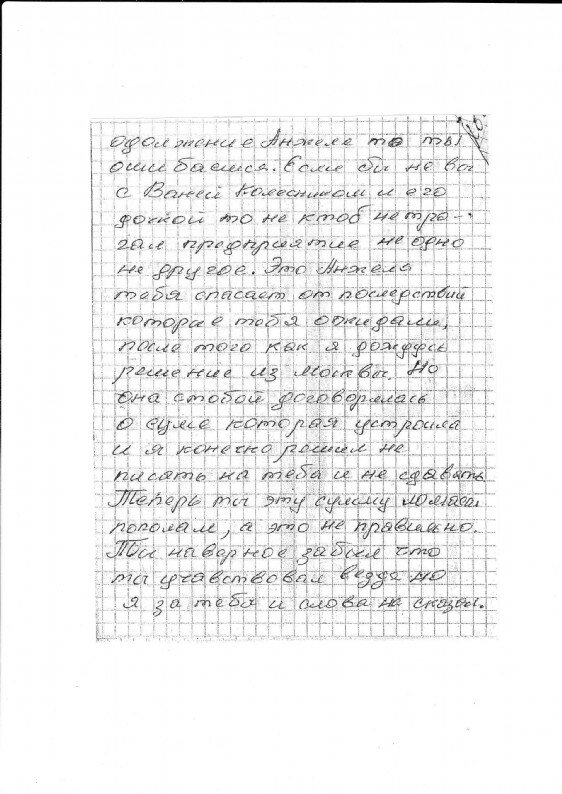 одолжение Анжеле то ты
ошибаешся. Если бы не вы
с Ваней Колесником и его
дочкой то не ктоб не тро-
гал предприятие не одно
не другое. Это Анжела
тебя спасает от последствий
которие тебя ожидали,
после того как я дождусь
решение из Москвы. Но
она стобой договорилась
о суме которая устроила
и я конечно решил не
писать на тебя и не сдавать.
Теперь ты эту сумму ломаеш
пополам, а это не правильно.
Ты наверное забыл что
ты учавствовал везде но
я за тебя и слова не сказал.